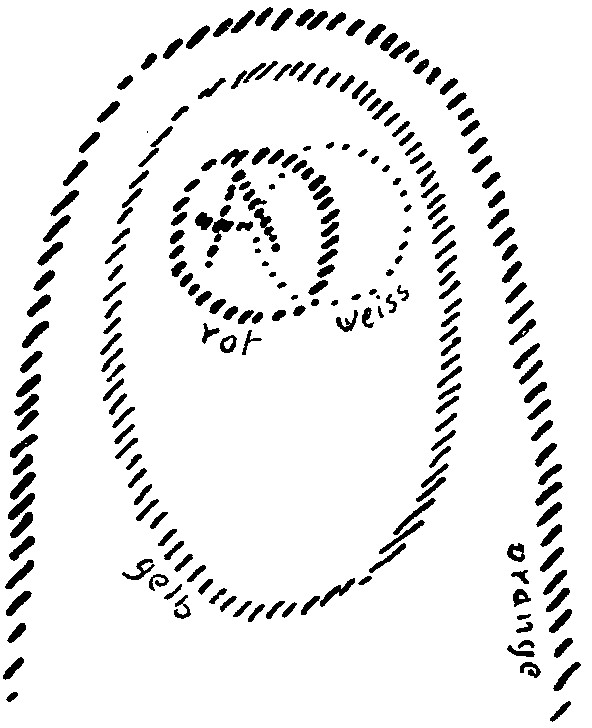 A
rot
weiss
gelb
orange